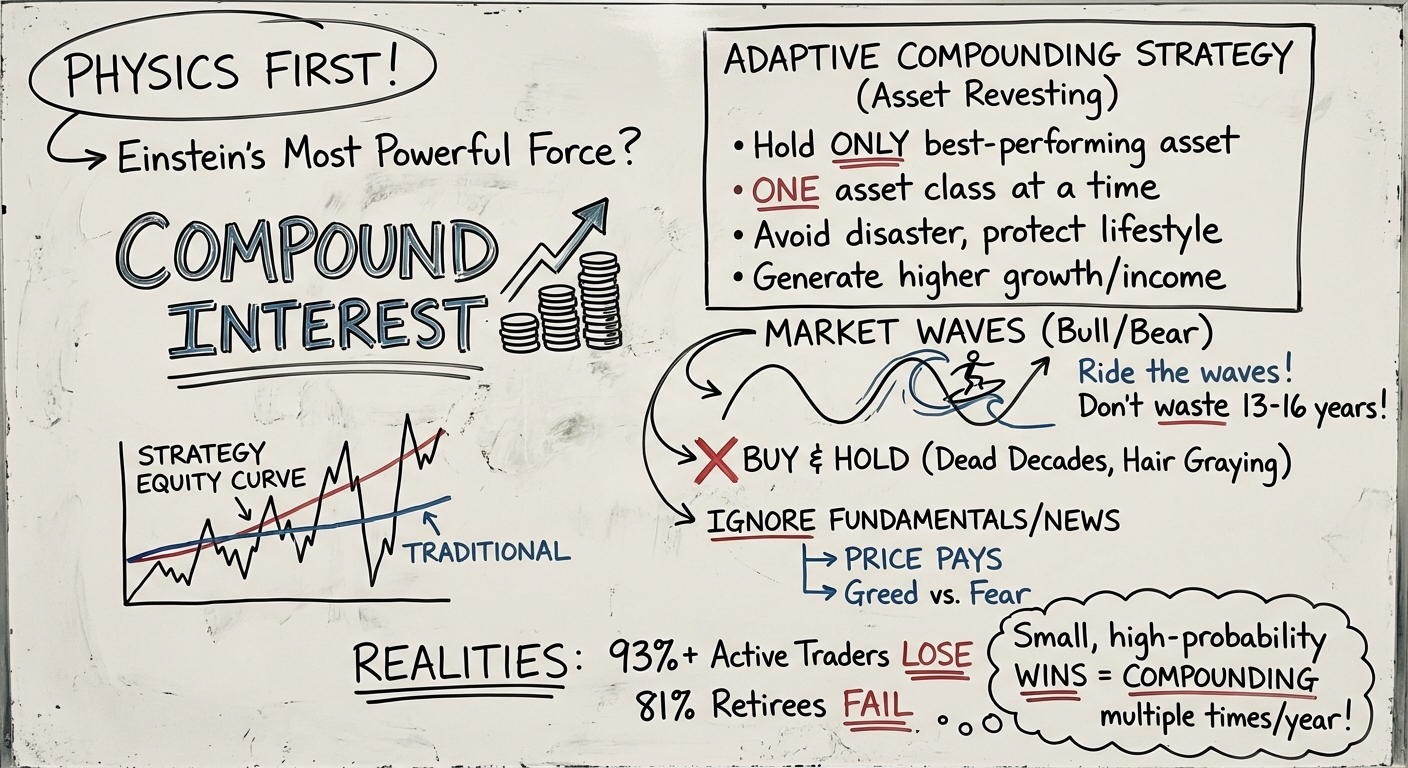 PHYSICS FIRST!
Einstein's Most Powerful Force?
COMPOUND
INTEREST
STRATEGY
EQUITY CURVE
TRADITIONAL
ADAPTIVE COMPOUNDING STRATEGY
(Asset Revesting)
• Hold ONLY best-performing asset
• ONE asset class at a time
• Avoid disaster, protect lifestyle
• Generate higher growth/income
MARKET WAVES (Bull/Bear)
Ride the waves!
Don't waste 13-16 years!
BUY & HOLD (Dead Decades, Hair Graying)
IGNORE FUNDAMENTALS/NEWS
PRICE PAYS
Greed vs. Fear
REALITIES: 93%+ Active Traders LOSE
81% Retirees FAIL
Small, high-probability
WINS = COMPOUNDING
multiple times/year!